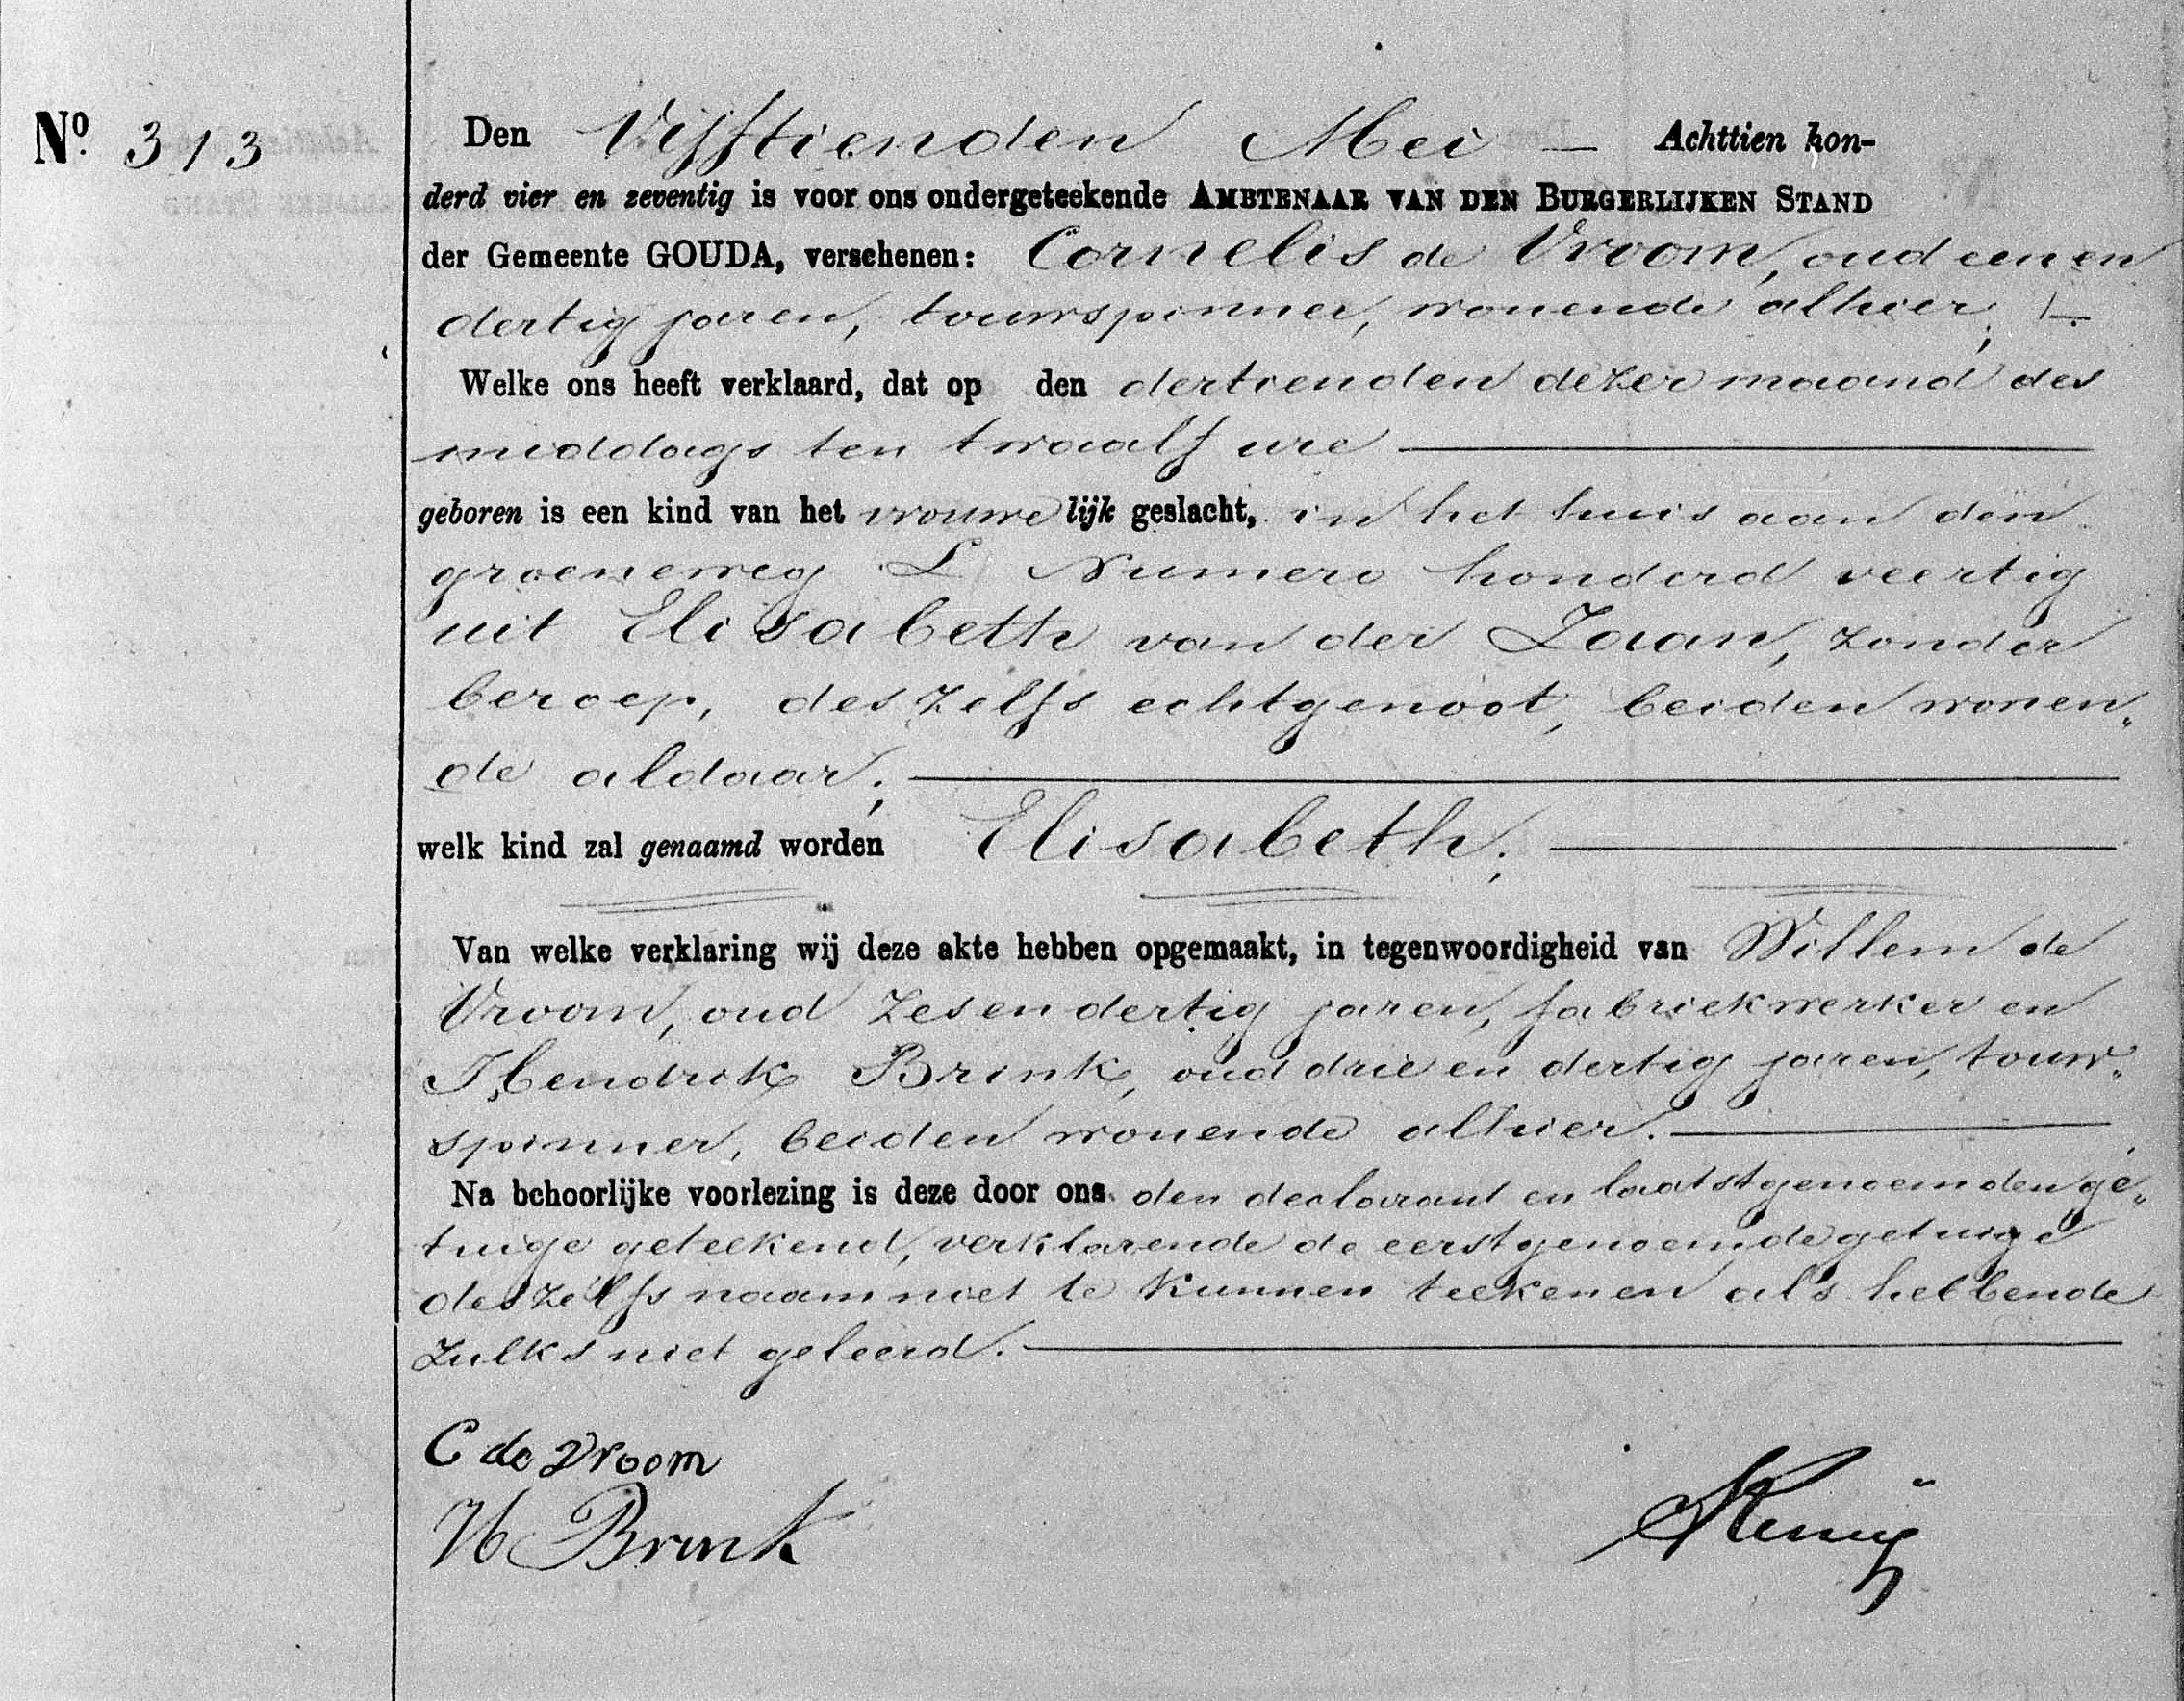 No. 313
Den Vijftienden Mei — Achttien hon-
derd vier en zeventig is voor ons ondergeteekende AMBTENAAR VAN DEN BURGERLIJKEN STAND
der Gemeente GOUDA, verschenen: Cornelis de Vroom, oud een en
dertig jaren, touwspinner, wonende alhier; —
Welke ons heeft verklaard, dat op den dertienden dezer maand des
middags ten twaalf ure —
geboren is een kind van het vrouwelijk geslacht, in het huis aan den
groeneweg L Numero honderd veertig
uit Elisabeth van der Zaan, zonder
beroep, deszelfs echtgenoot, beiden wonen„
de aldaar; —
welk kind zal genaamd worden Elisabeth; —
Van welke verklaring wij deze akte hebben opgemaakt, in tegenwoordigheid van Willem de
Vroom, oud zes en dertig jaren, fabriekwerker en
Hendrik Brink, oud drie en dertig jaren, touw„
spinner, beiden wonende alhier. —
Na behoorlijke voorlezing is deze door ons den declarant en laatstgenoemden ge„
tuige geteekend, verklarende de eerstgenoemde getuige
deszelfs naam niet te kunnen teekenen als hebbende
zulks niet geleerd. —
C de Vroom
H Brink